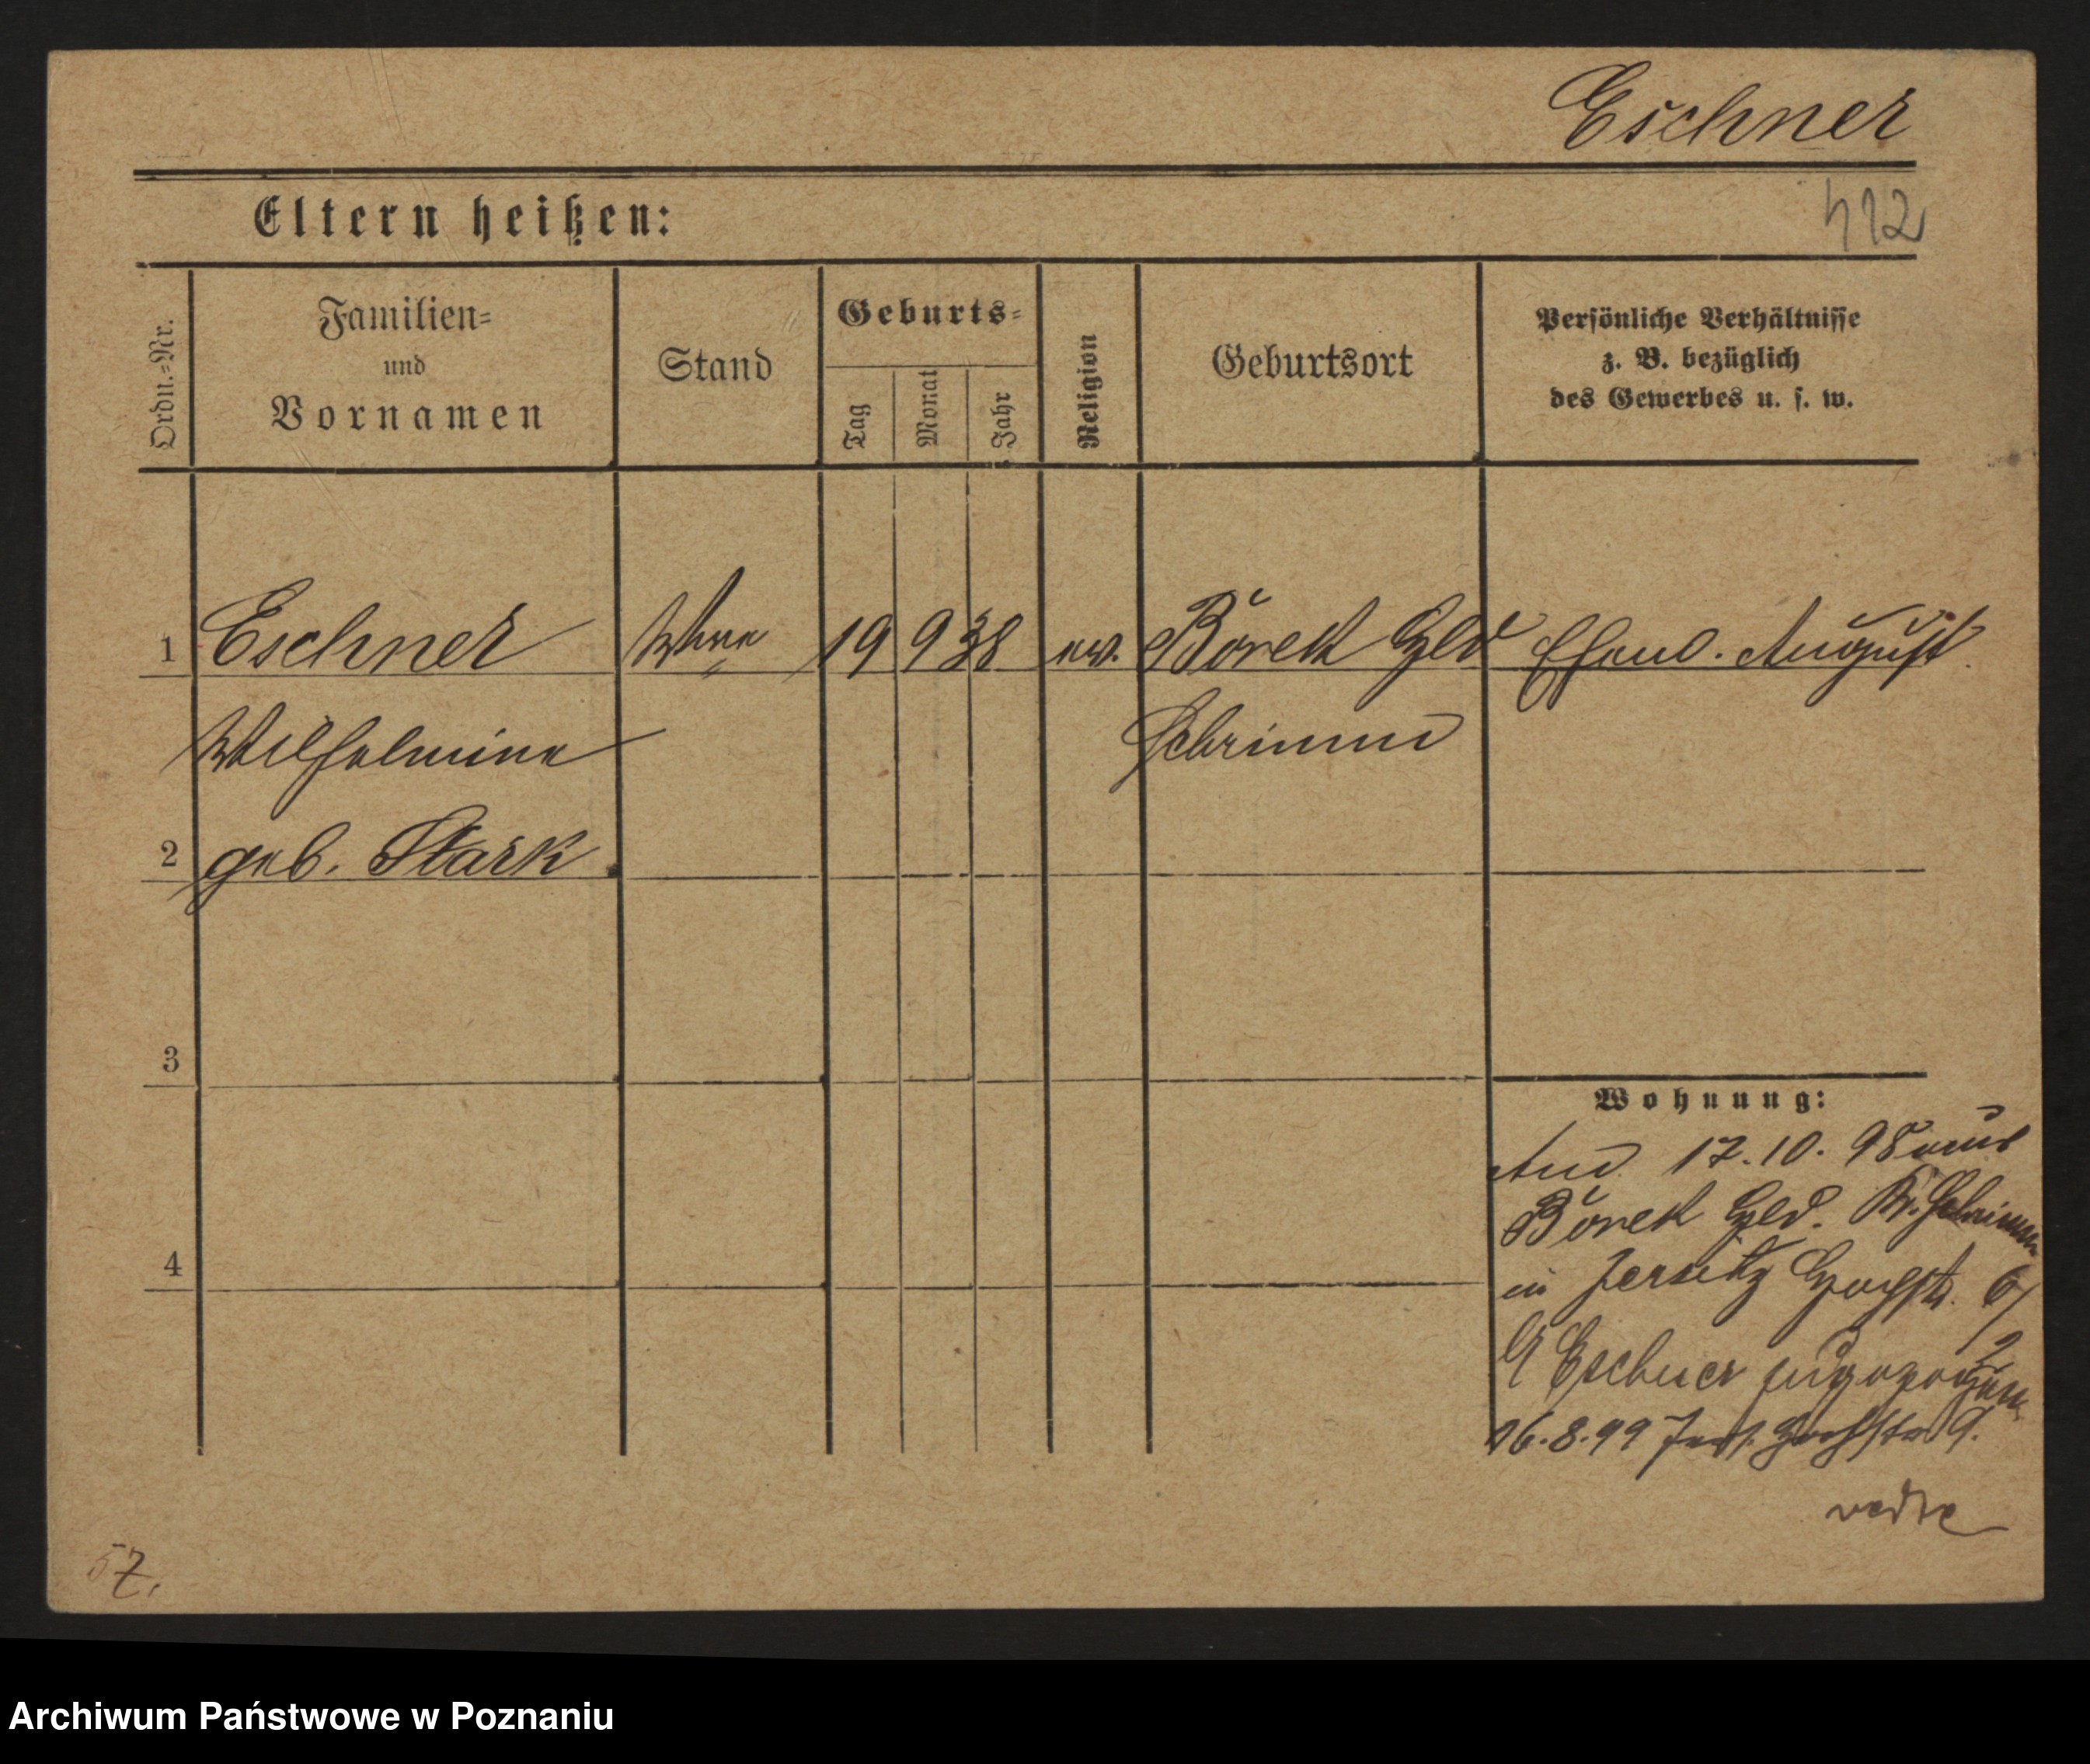 Eschner
Eltern heißen:
412
Ordn.-Nr.
Familien- und Vornamen
Stand
Geburts-
Tag
Monat
Jahr
Religion
Geburtsort
Persönliche Verhältnisse
z. B. bezüglich
des Gewerbes u. s. w.
1 Eschner Wwe 19 9 38 ev. Borek Gld Ehem. August
Wilhelmine Schrimm
2 geb. Stark
3
Wohnung:
17.10. 98 aus
Borek Gld. Kr. Schrimm
4
in Jersitz 6/
Eschner zugezogen
26.8.99 Jers. 9.
57.
Archiwum Państwowe w Poznaniu